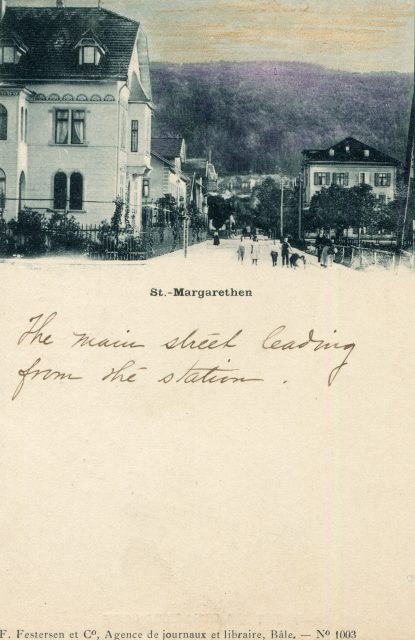 St.-Margarethen
The main street leading
from the station .
F. Festersen et Cº, Agence de journaux et libraire, Bâle. — Nº 1003